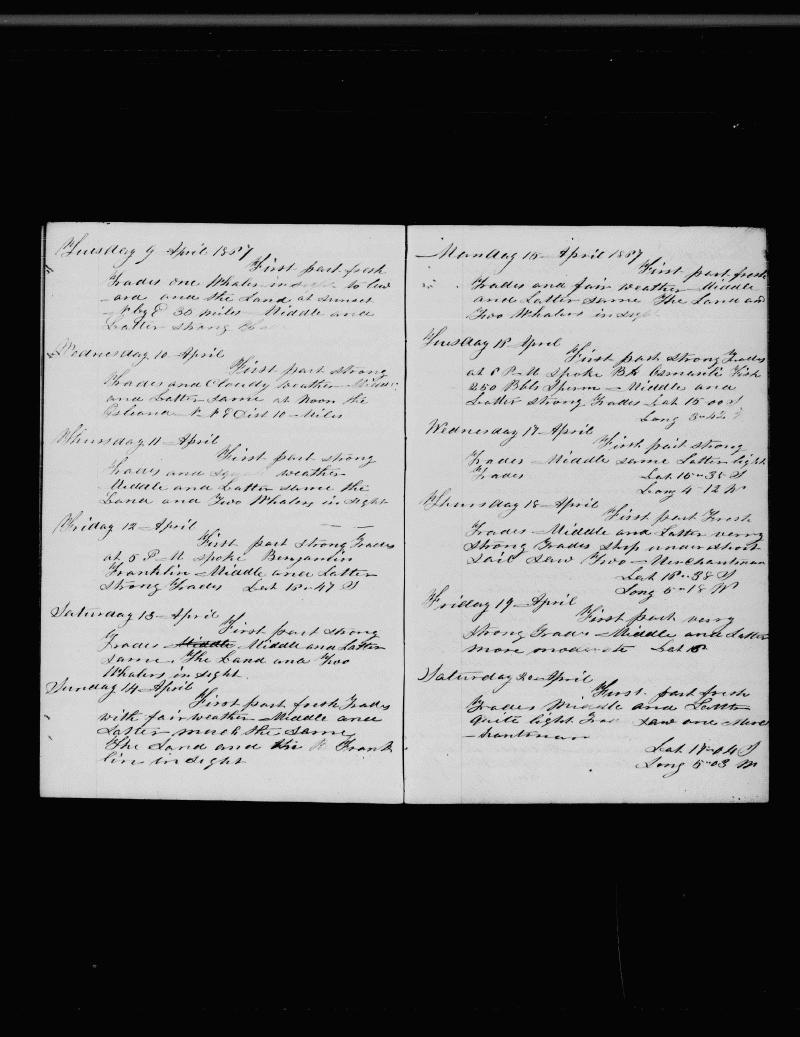 Tuesday 9 April 1867
First part fresh
Trades one Whaler in sight to lew
-ard and the Land at sunset
N by E 30 miles Middle and
Latter strong
Wednesday 10 April
First part strong
Trades and Cloudy weather Middle
and Latter same at Noon the
Dist 10 Miles
Thursday 11 April
First part strong
Trades and weather
Middle and Latter same the
Land and Two Whalers in sight
Friday 12 April
First part strong Trades
at 5 P-M spoke Benjamin
Franklin Middle and Latter
strong Trades Lat 15-47 S
Saturday 13 April
First part strong
Trades Middle Middle and Latter
same. The Land and Two
Whalers in sight.
Sunday 14 April
First part fresh Trades
with fair weather Middle and
Latter much the same
The Land and the B Frank
lin in sight
Monday 15 April 1867
First part fresh
Trades and fair weather Middle
and Latter same The Land and
Two Whalers in sight
Tuesday 16 April
First part strong Trades
at P-M spoke Bk Osmanli Fish
250 Bbls Sperm Middle and
Latter strong Trades Lat 15-00 S
Long
Wednesday 17 April
First part strong
Trades Middle same Latter light
Trades Lat 15-35 S
Long 4-12 W
Thursday 18 April
First part Fresh
Trades Middle and Latter verry
strong Trades ship under short
sail saw Two Merchantman
Lat 15-38 S
Long 5-18 W
Friday 19 April
First part very
strong Trades Middle and Latter
more moderate Lat
Saturday 20 April
First part fresh
Trades Middle and Latter
quite light Trad saw one Merc
-hantman
Lat 17-04 S
Long 5-03 W